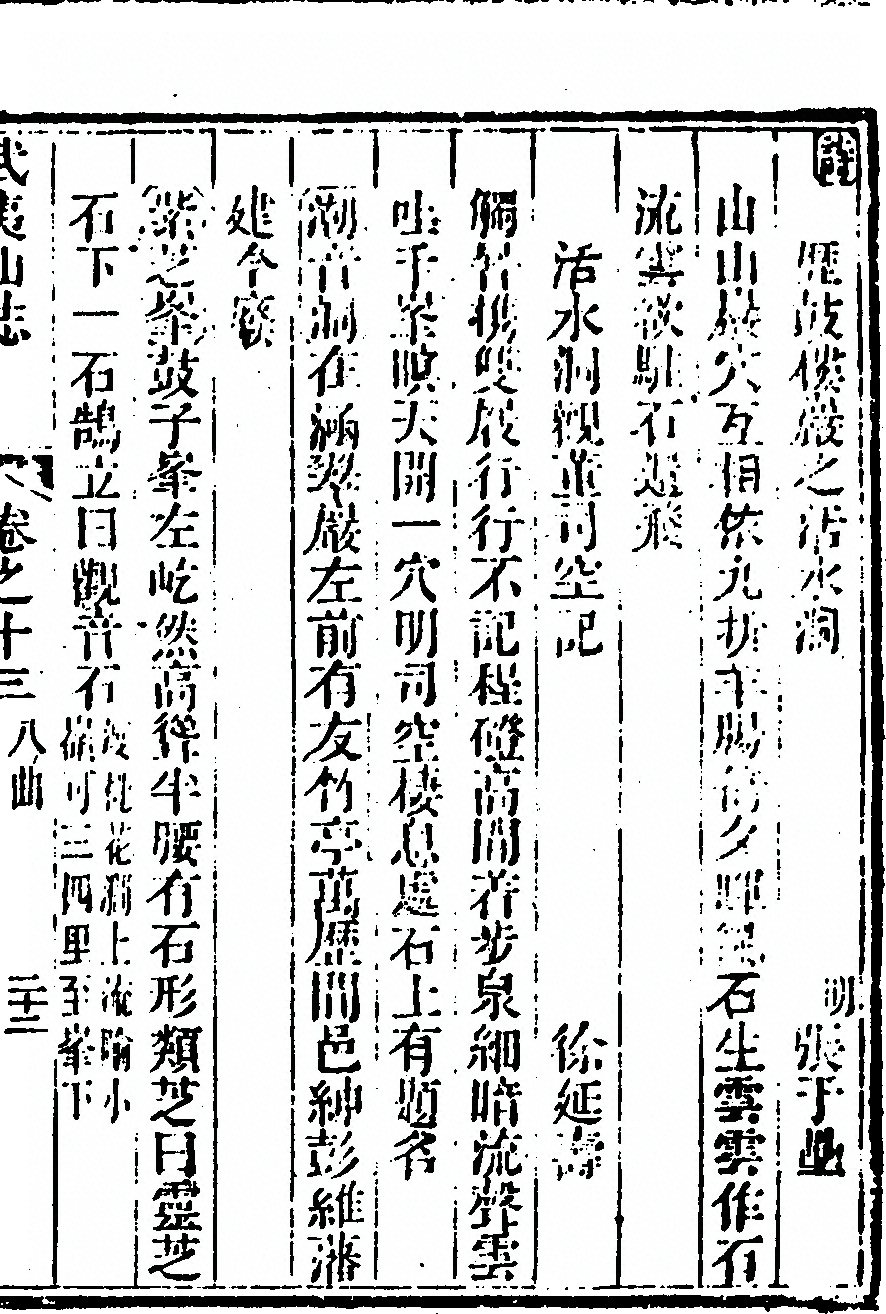 詩
歷鼓樓巖之活水洞 明 張于壘
山山巖穴互相依九折羊腸倚夕暉石生雲雲作石
流雲欲駐石還飛
活水洞觀董司空記 徐延壽
觸笋携雙屐行行不記程磴高閒着步泉細暗流聲雲
吐千峯暝天開一穴明司空棲息處石上有題名
潮音洞在涵翠巖左前有友竹亭萬歷間邑紳彭維藩
建今廢
紫芝峯鼓子峯左屹然高聳半腰有石形類芝曰靈芝
石下一石鵠立曰觀音石渡桃花澗上流喻小嶺可三四里至峯下
武夷山志 卷之十三 八曲 二十三